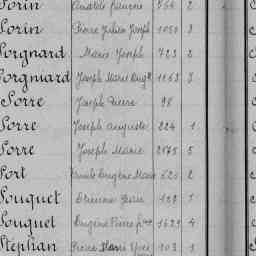 Sorin Anatole François 766 2
Sorin Pierre Julien Joseph 1050 3
Sorgnard Marie Joseph 723 2
Sorgniard Joseph Marie Eug. 1163 3
Sorre Joseph Pierre 98
Sorre Joseph Auguste 224 1
Sorre Joseph Marie 2175 5
Sort Emile Eugène Marie 620 2
Souquet Etienne Jean
Souquet Eugène Pierre 1629 4
Stephan Pierre Marie Yves 303 1